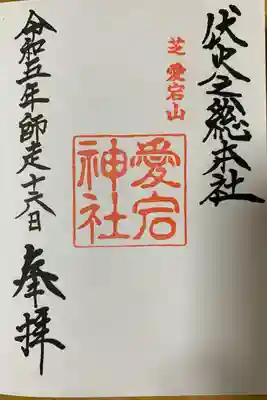 伏火之総本社
芝愛宕山
愛宕神社
奉拝
令和五年師走十六日